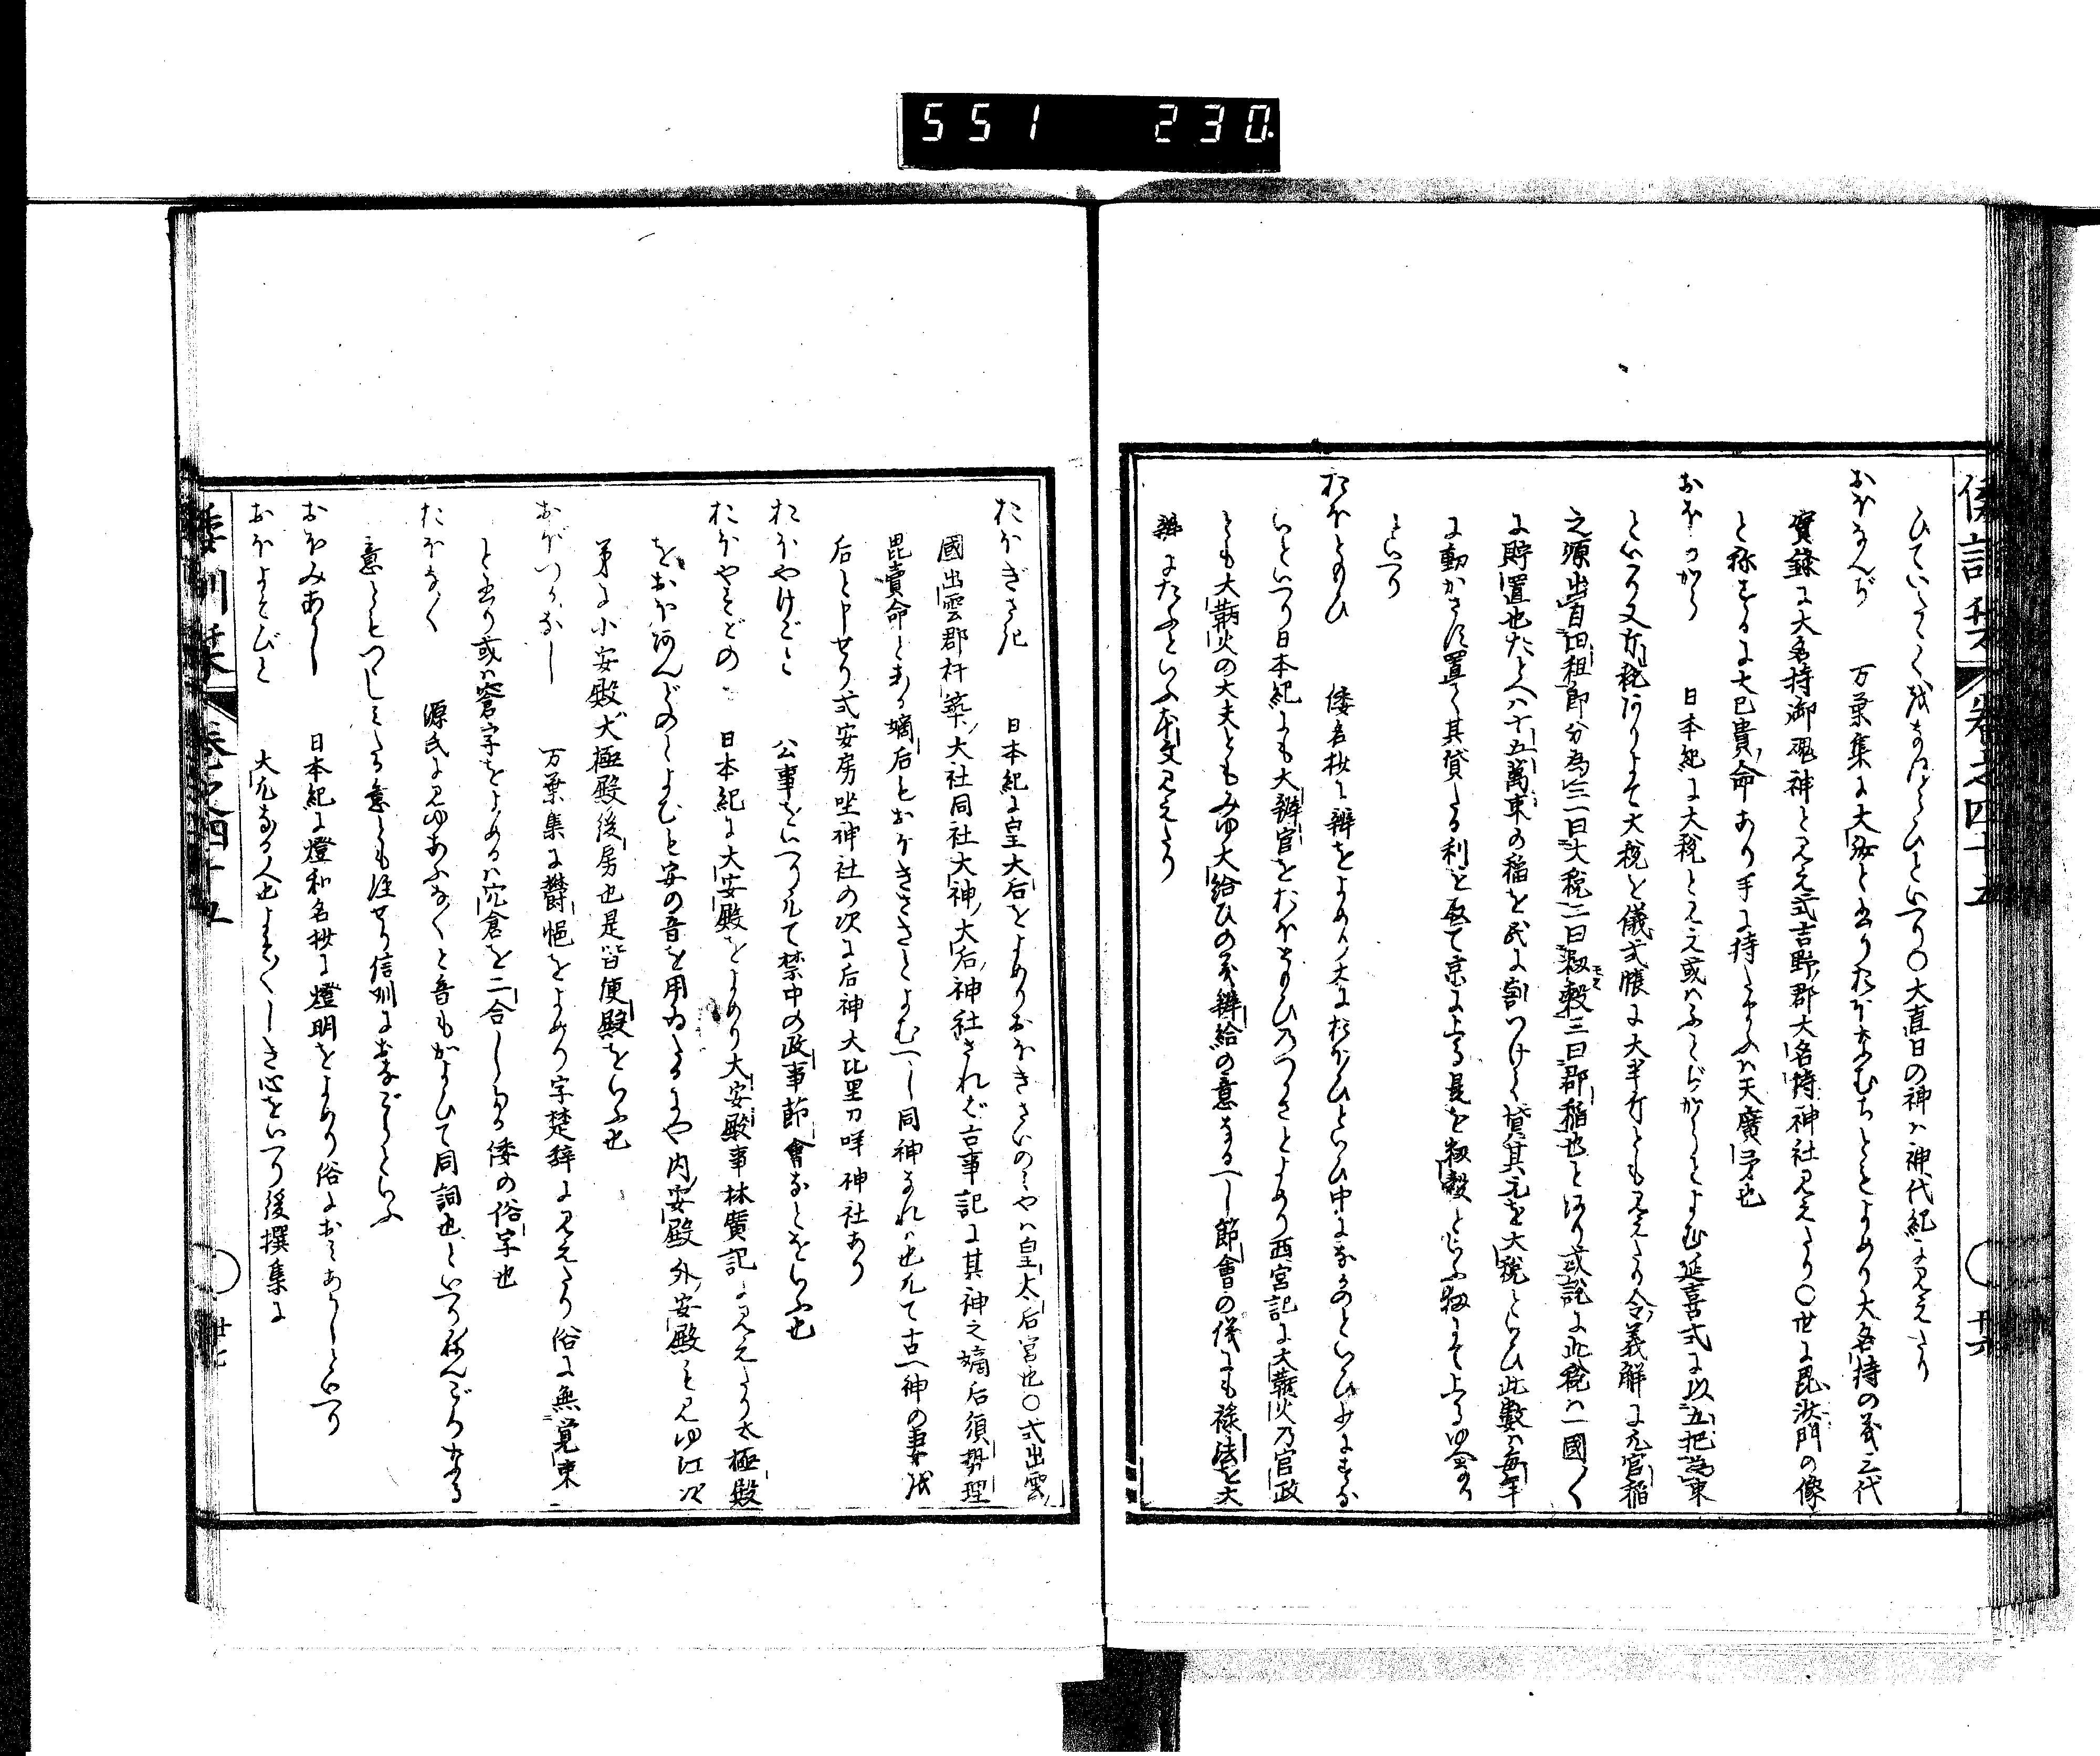 551 230
倭訓栞 卷之四十五 卅六
ひていたく哉なほらひといへり○大直日の神ハ神代紀に見えたり
おほなんぢ 万葉集に大汝と書りたほなむちともよめり大名持の義三代
實録に大名持御魂神と見え式吉野郡大名持神社見えたり○世に毘沙門の像
と称するに大己貴命あり手に持たまふハ天廣矛也
おほつから 日本紀に大税と見え或ハふとぢからとよむ延喜式に以五把為束
といへり又有税ありよて大税と儀式帳に大半斤とも見えたり令義解に凡官稲
之源出自田租即分為三一曰大税二曰籾穀三曰郡稲也とあり或説に此税ハ一國〱
に貯置也たとへハ十五萬束の稲を民に割つけて貸其元を大税といひ此数ハ毎年
に動かさずに置て其貸たる利を取て京に上る是を籾穀といふ籾にて上るゆゑなり
といへり
おほともひ 倭名抄に辨をよめり大におほひといひ中になかのといひ少にすな
いといへり日本紀にも大辨官をたほともひのつかさとよめり西宮記に大鞆火乃官政
とも大鞆火の大夫ともみゆ大給ひの義辨給の意なるへし節會の儀にも禄法を大
辨にたふといふ本文見えたり
おほぎさき 日本紀に皇大后をよめりおほきさいのみやハ皇太后宮也○式出雲
國出雲郡杵築大社同社大神大后神社されど古事記に其神之嫡后須勢理
毘賣命とあり嫡后とおほきさきとよむへし同神なれハ也凡て古へ神の妻哉
后と申せり式安房坐神社の次に后神大比里刀咩神社あり
おほやけごと 公事をいへり凡て禁中の政事節會などをいふ也
おほやすどの 日本紀に大安殿をよめり大安殿事林廣記に見えたり大極殿
をおほあんどのとよむも安の音を用ゐたるにや内安殿外安殿も見ゆ江次
第に小安殿大極殿後房也是皆便殿をいふ也
おぼつかなし 万葉集に欝悒をよめり字楚辞に見えたり俗に無覚束
と書り或ハ窖字をよめるハ穴倉を二合しゝ倭の俗字也
おほなく 源氏に見ゆあふなくと音もかよひて同詞也といへりねんごろなる
意ともつゝしみたる意とも注せり信州におほごしといふ
おほみあかし 日本紀に燈和名抄に燈明をよめり俗におみあかしといへり
おほよそびと 大凡なる人也よそ〱しき心をいへり後撰集に
倭訓栞 卷之四十五 卅七